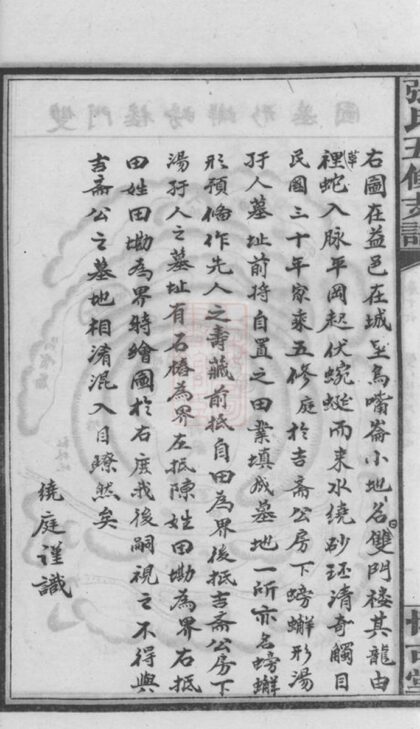 張氏五修支譜
右圖在益邑在城里烏嘴崙小地名雙門楼其龍由
草裡蛇入脉平岡起伏蜿蜒而来水繞砂环清奇觸目
民國三十年家乘五修庭於吉斋公房下螃蠏形湯
孺人墓址前将自置之田業填成墓地一所亦名螃蠏
形預俻作先人之壽藏前抵自田為界後抵吉斋公房下
湯孺人之墓址有石樁為界左抵陳姓田墈為界右抵
田姓田墈為界特繪圖於右庶我後嗣視之不得與
吉斋公之墓地相淆混入目瞭然矣
繞庭謹識